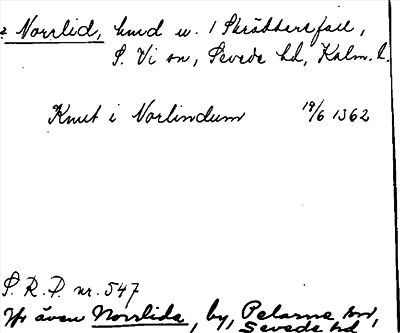 Norrlid, hmd u. 1 Skräddersfall,
S. Vi sn, Sevede hd, Kalm. l.
Knut i Norlindum 19/6 1362
S. R. P. nr. 547
Jfr även Norrlida, by, Pelarne sn,
Sevede hd